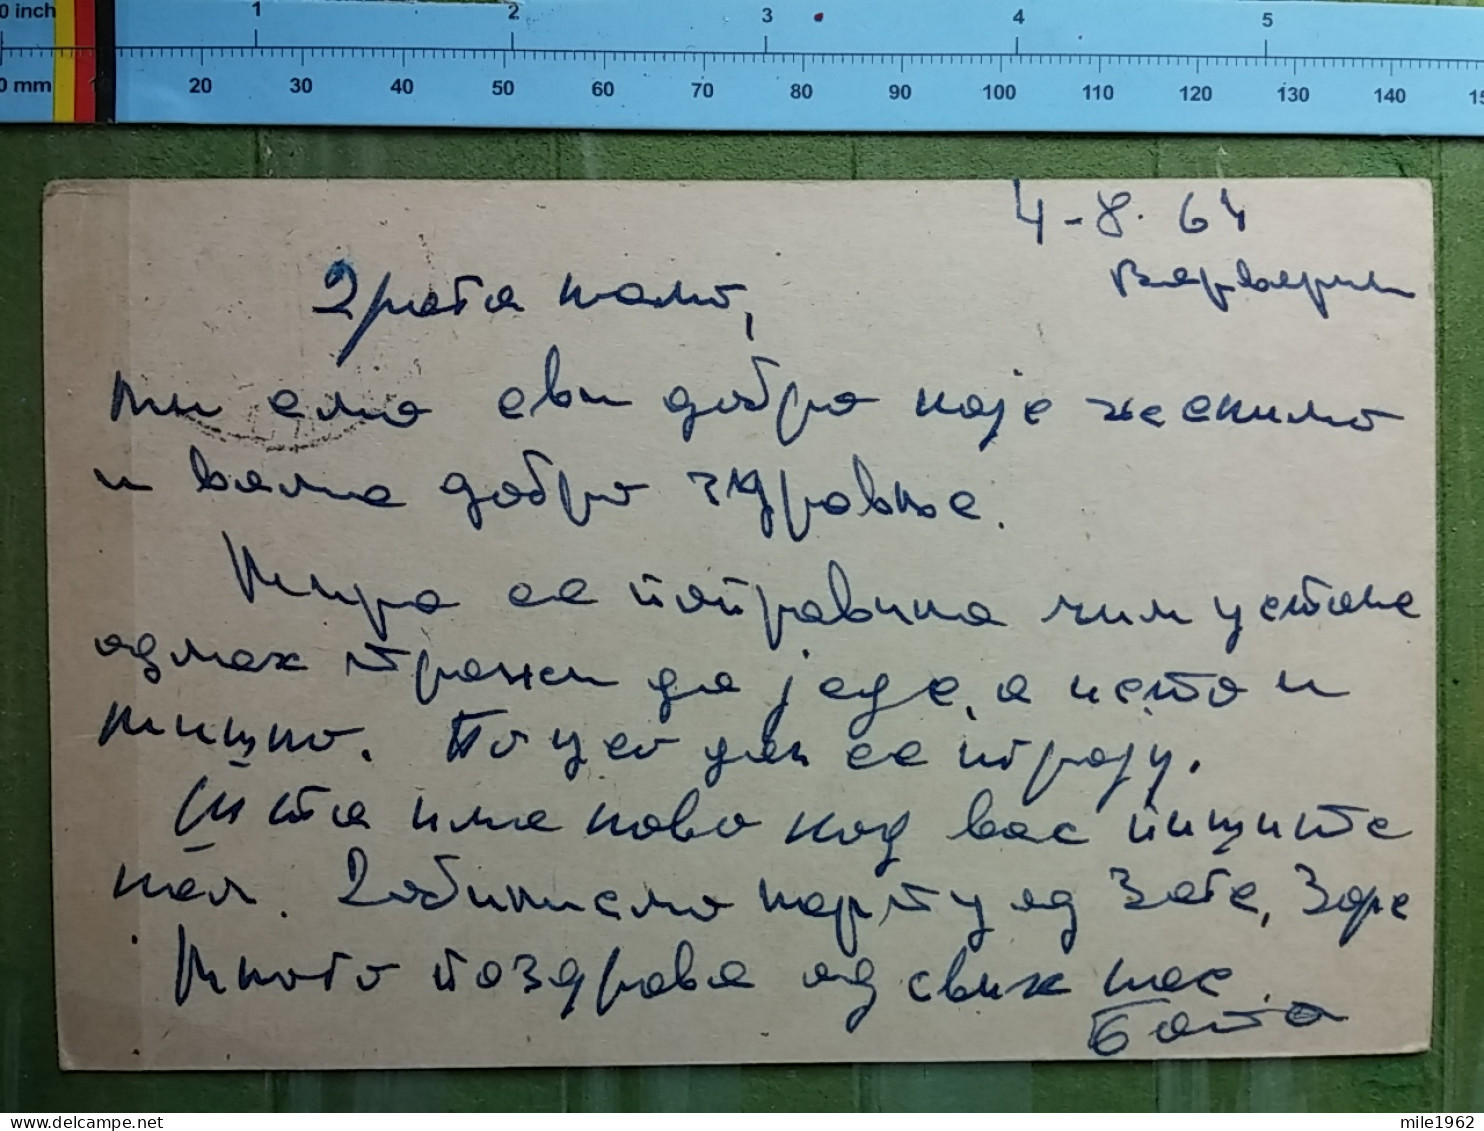 0 inch 1 2 3 4 5
0 mm 10 20 30 40 50 60 70 80 90 100 110 120 130 140 15
4-8. 64
Варварин
Драга мамо,
ми смо сви добро које желимо
и вама добро здравље.
Мира се поправила чим устане
одмах тражи да једе, а исто и
Поцео дан се играју.
Шта има ново код вас пишите
нам. Добили смо карту од Заге, Зоре
Много поздрава од свих нас.
Бата
mile1962